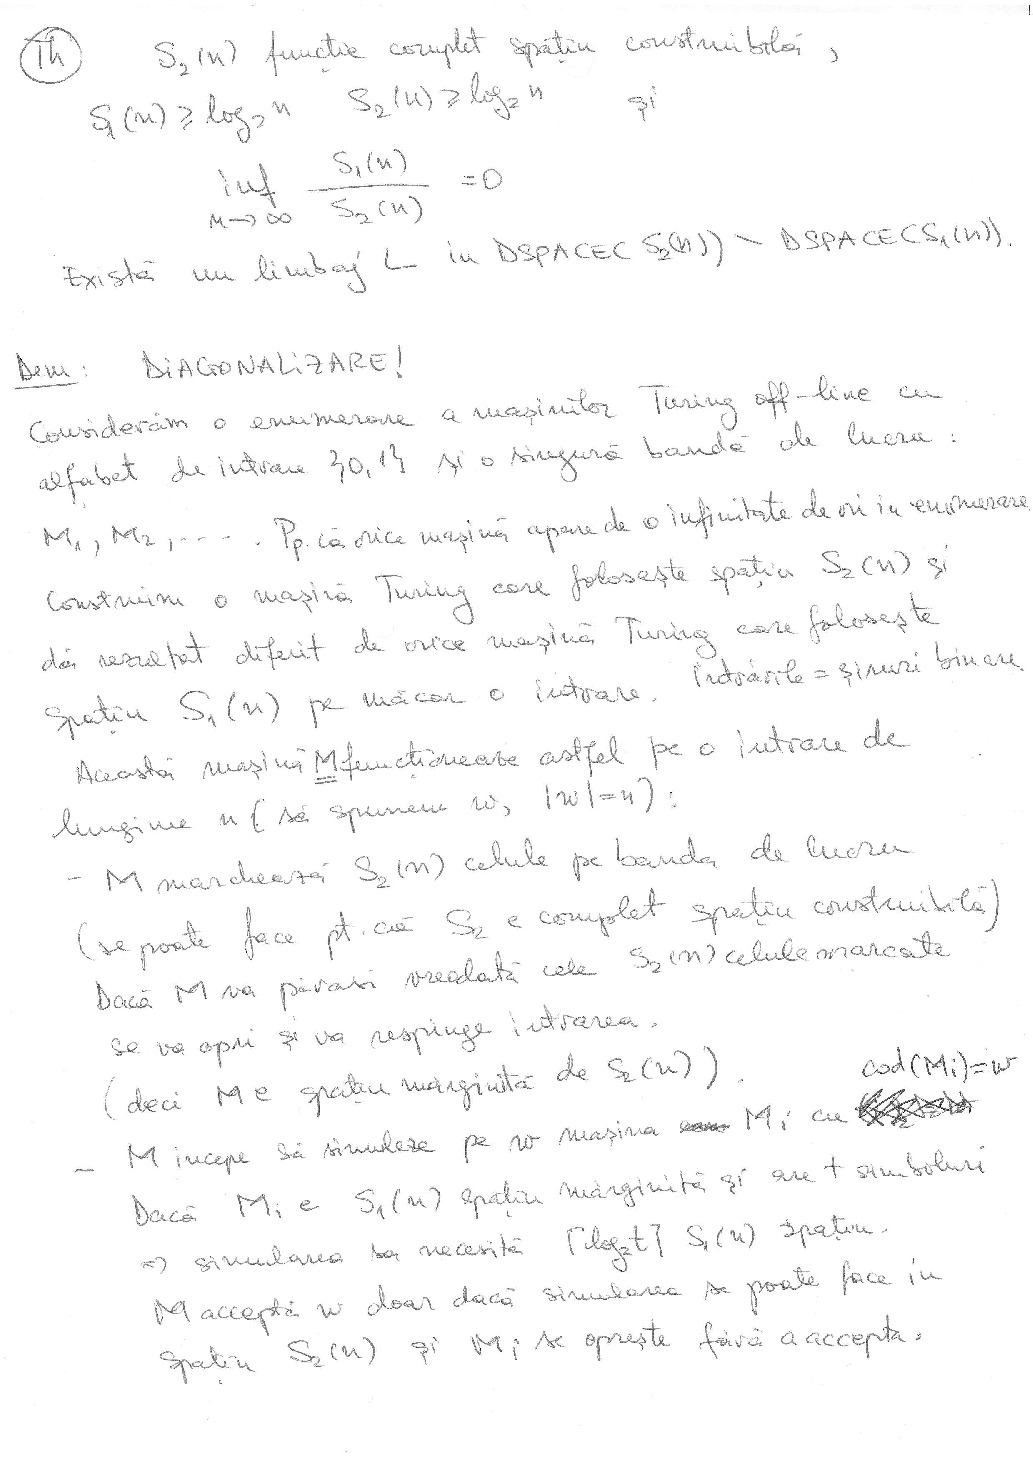 Th S₂(n) funcție complet spațiu construibilă,
S₁(n) ≥ log₂ n S₂(n) ≥ log₂ n și
inf S₁(n) / S₂(n) = 0
n→∞
Există un limbaj L in DSPACE(S₂(n)) \ DSPACE(S₁(n)).
Dem: DIAGONALIZARE!
Considerăm o enumerare a mașinilor Turing off-line cu
alfabet de intrare {0,1} și o singură bandă de lucru:
M₁, M₂, .... Pp. că orice mașină apare de o infinitate de ori in enumerare
Construim o mașină Turing care folosește spațiu S₂(n) și
dă rezultat diferit de orice mașină Turing care folosește
spațiu S₁(n) pe măcar o intrare. Intrările = șiruri binare
Această mașină M funcționează astfel pe o intrare de
lungime n (să spunem w, |w|=n):
- M marchează S₂(n) celule pe banda de lucru
(se poate face pt. că S₂ e complet spațiu construibilă)
Dacă M va părăsi vreodată cele S₂(n) celule marcate
se va opri și va respinge intrarea.
(deci M e spațiu mărginită de S₂(n)).
cod(Mi)=w
- M incepe să simuleze pe w mașina Mi cu
Dacă Mi e S₁(n) spațiu mărginită și are t simboluri
=> simularea sa necesită ⌈log₂t⌉ S₁(n) spațiu.
M acceptă w doar dacă simularea se poate face in
spațiu S₂(n) și Mi se oprește fără a accepta.